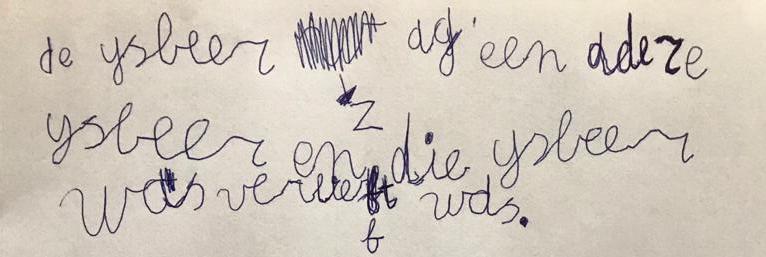 de ysbeer zag een adere
ysbeer en die ysbeer
was verlieft was.